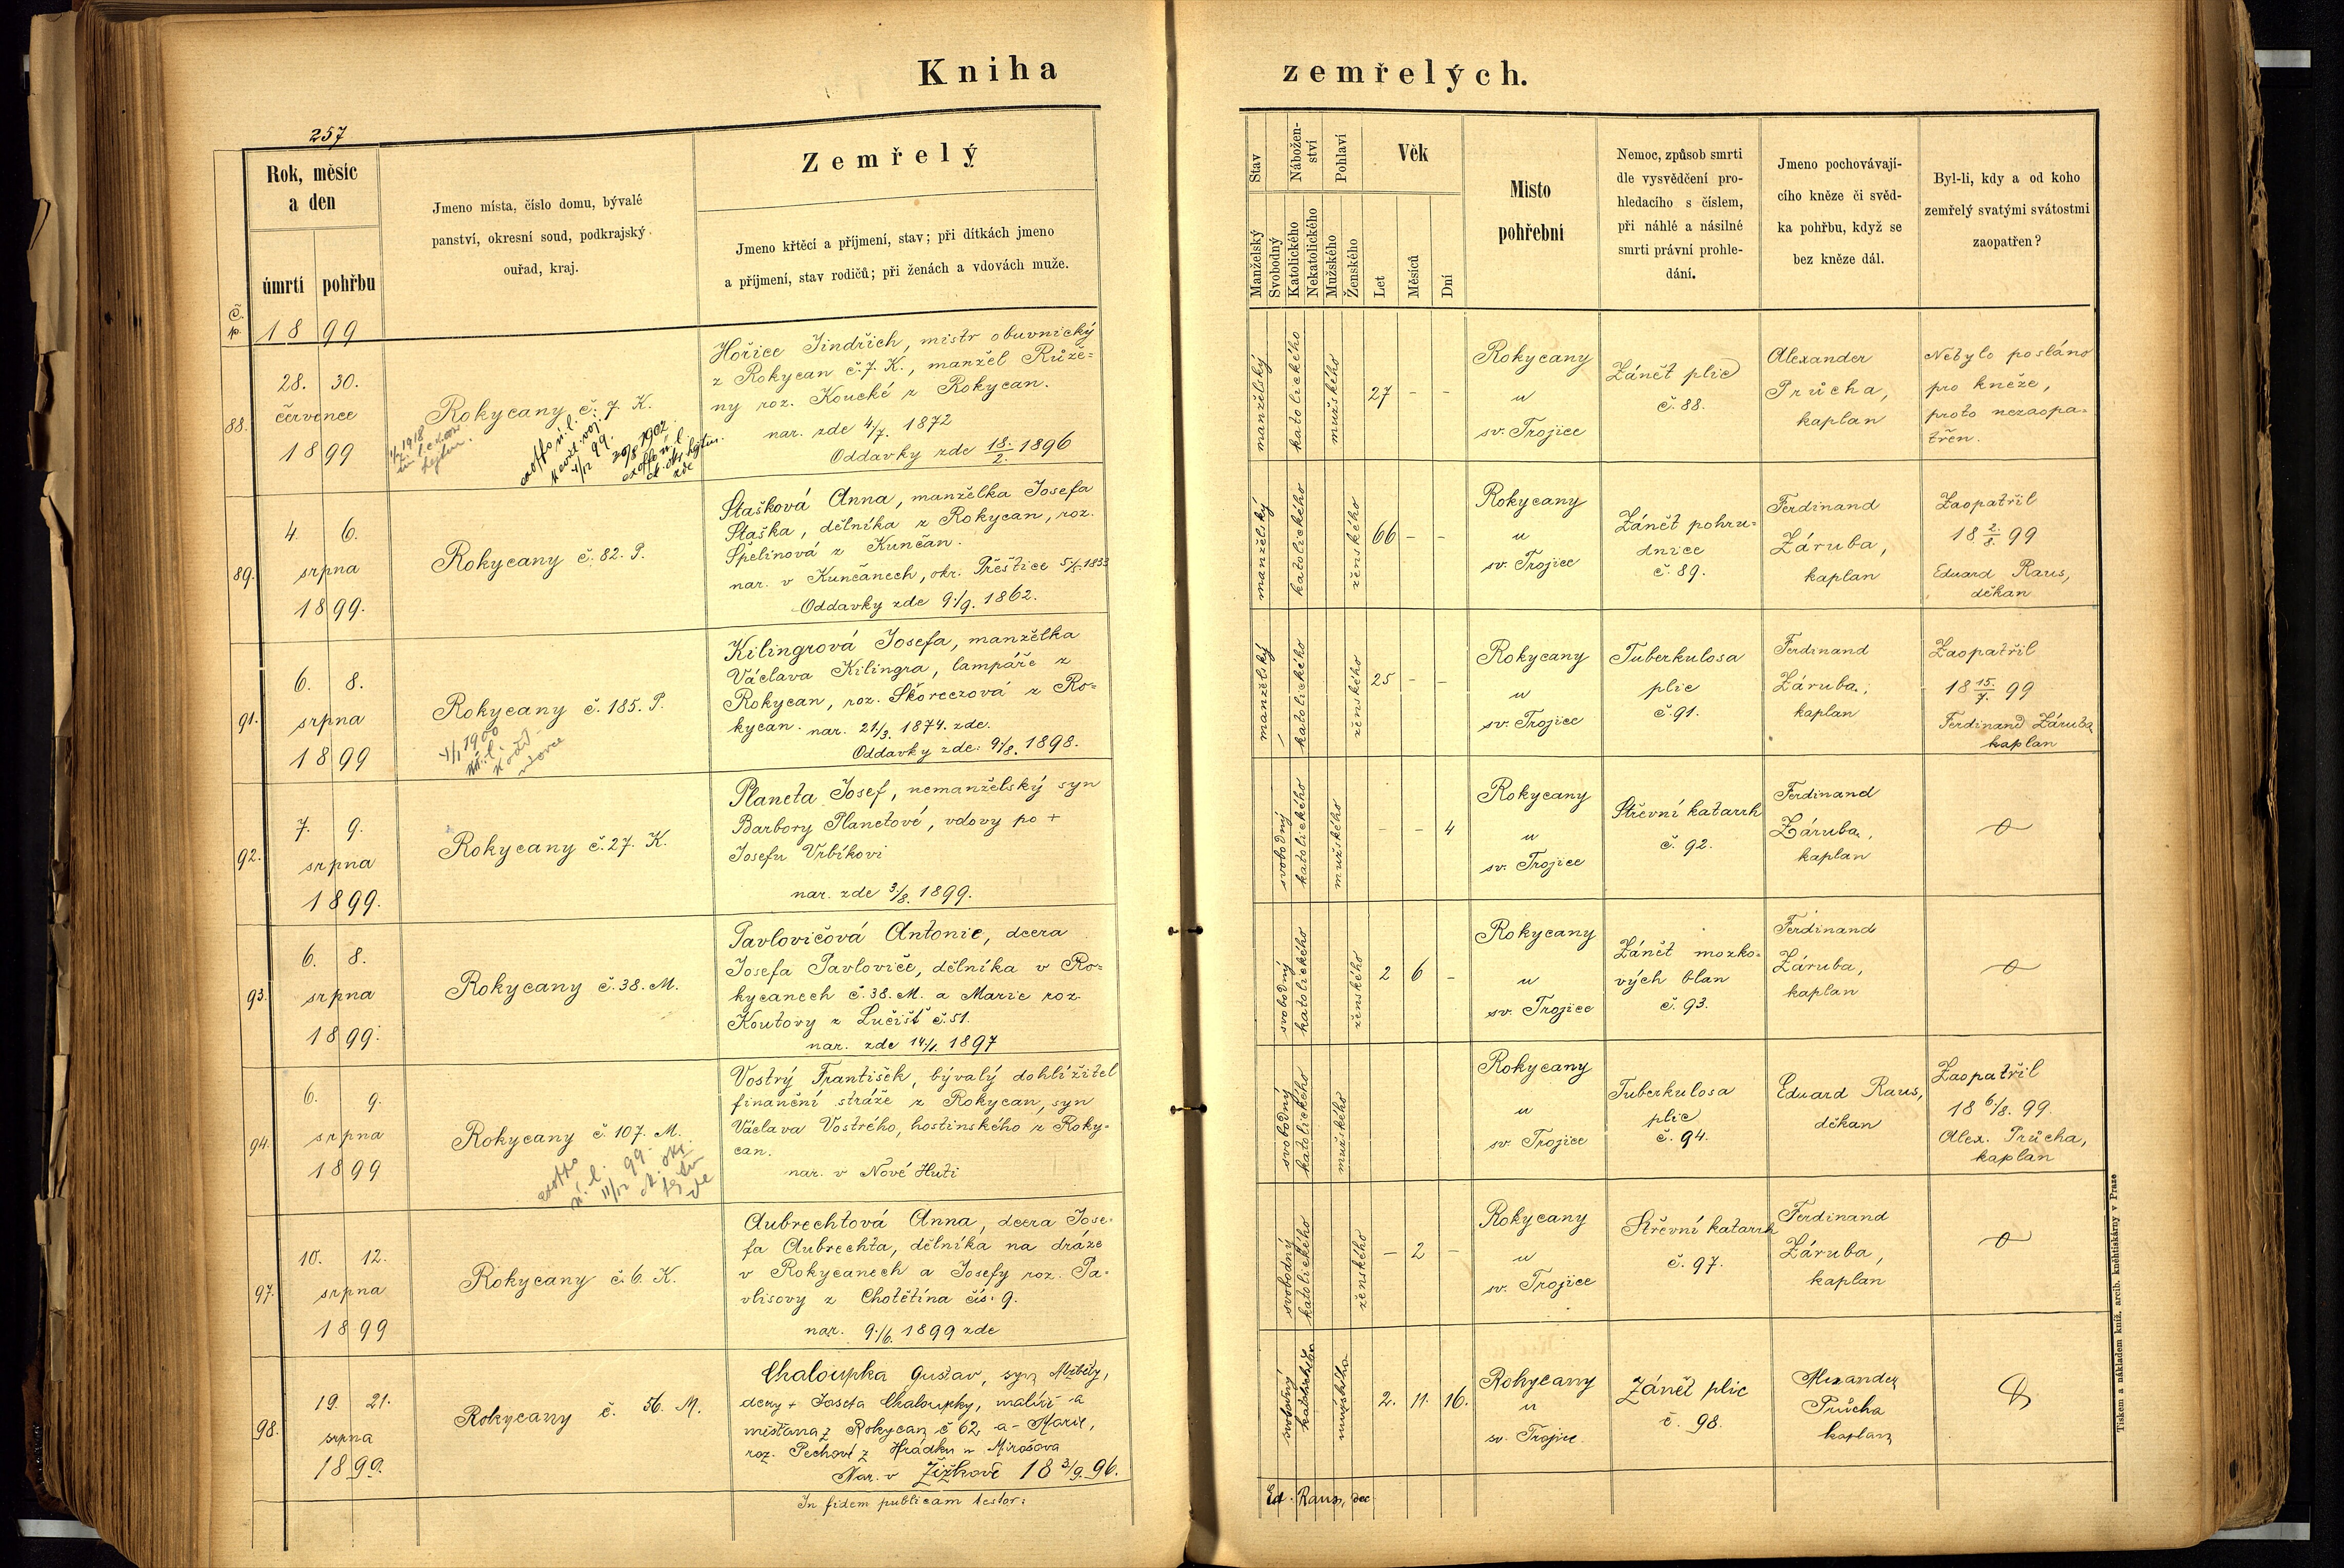 Kniha
zemřelých.
257
Rok, měsíc
a den
úmrtí pohřbu
Č.
p.
Jmeno místa, číslo domu, bývalé
panství, okresní soud, podkrajský
ouřad, kraj.
Zemřelý
Jmeno křtěcí a příjmení, stav; při dítkách jmeno
a příjmení, stav rodičů; při ženách a vdovách muže.
Stav
Manželský
Svobodný
Nábožen-
ství
Katolického
Nekatolického
Pohlaví
Mužského
Ženského
Věk
Let
Měsíců
Dní
Místo
pohřební
Nemoc, způsob smrti
dle vysvědčení pro-
hledacího s číslem,
při náhlé a násilné
smrti právní prohle-
dání.
Jmeno pochovávají-
cího kněze či svěd-
ka pohřbu, když se
bez kněze dál.
Byl-li, kdy a od koho
zemřelý svatými svátostmi
zaopatřen?
1899
88.
28. 30.
července
1899
Rokycany č. 7. K.
Hořice Jindřich, mistr obuvnický
z Rokycan č. 7. K., manžel Růže-
ny roz. Koucké z Rokycan.
nar. zde 4/7. 1872
Oddavky zde 18./2. 1896
manželský
katolického
mužského
27 - -
Rokycany
u
sv. Trojice
Zánět plic
č. 88.
Alexander
Průcha,
kaplan
Nebylo posláno
pro kněze,
proto nezaopa-
třen.
89.
4. 6.
srpna
1899.
Rokycany č. 82. P.
Stašková Anna, manželka Josefa
Staška, dělníka z Rokycan, roz.
Špelinová z Kunčan.
nar. v Kunčanech, okr. Přeštice 5/5. 1833
Oddavky zde 9./9. 1862.
manželský
katolického
ženského
66 - -
Rokycany
u
sv. Trojice
Zánět pohru-
dnice
č. 89.
Ferdinand
Záruba,
kaplan
Zaopatřil
18 2./8. 99
Eduard Raus,
děkan
91.
6. 8.
srpna
1899
Rokycany č. 185. P.
Kilingrová Josefa, manželka
Václava Kilingra, lampáře z
Rokycan, roz. Škoreczová z Ro-
kycan. nar. 21/3. 1874. zde.
Oddavky zde: 9/8. 1898.
manželský
katolického
ženského
25 - -
Rokycany
u
sv. Trojice
Tuberkulosa
plic
č. 91.
Ferdinand
Záruba,
kaplan
Zaopatřil
18 15./7. 99
Ferdinand Záruba
kaplan
92.
7. 9.
srpna
1899.
Rokycany č. 27. K.
Planeta Josef, nemanželský syn
Barbory Planetové, vdovy po +
Josefu Vrbíkovi
nar. zde 3./8. 1899.
svobodný
katolického
mužského
- - 4
Rokycany
u
sv. Trojice
Střevní katarrh
č. 92.
Ferdinand
Záruba,
kaplan
93.
6. 8.
srpna
1899.
Rokycany č. 38. M.
Pavlovičová Antonie, dcera
Josefa Pavloviče, dělníka v Ro-
kycanech č. 38. M. a Marie roz.
Koutovy z Lučišť č. 51.
nar. zde 14./1. 1897
svobodný
katolického
ženského
2 6 -
Rokycany
u
sv. Trojice
Zánět mozko-
vých blan
č. 93.
Ferdinand
Záruba,
kaplan
94.
6. 9.
srpna
1899
Rokycany č. 107. M.
Vostrý František, bývalý dohlížitel
finanční stráže z Rokycan, syn
Václava Vostrého, hostinského z Roky-
can.
nar. v Nové Huti
svobodný
katolického
mužského
Rokycany
u
sv. Trojice
Tuberkulosa
plic
č. 94.
Eduard Raus,
děkan
Zaopatřil
18 6./8. 99.
Alex. Průcha,
kaplan
97.
10. 12.
srpna
1899
Rokycany č. 6. K.
Aubrechtová Anna, dcera Jose-
fa Aubrechta, dělníka na dráze
v Rokycanech a Josefy roz. Pa-
vlisovy z Chotětína čís. 9.
nar. 9./6. 1899 zde
svobodný
katolického
ženského
- 2 -
Rokycany
u
sv. Trojice
Střevní katarrh
č. 97.
Ferdinand
Záruba,
kaplan
98.
19. 21.
srpna
1899.
Rokycany č. 56. M.
Chaloupka Gustav, syn Alžběty,
dcery + Josefa Chaloupky, malíři a
mišťana z Rokycan č 62, a Marie,
roz. Pechové z Hrádku u Mirošova
Nar. v Žižkově 18 3/9. 96.
svobodný
katolického
mužského
2. 11. 16.
Rokycany
u
sv. Trojice
Zánět plic
č. 98.
Alexander
Průcha
kaplan
In fidem publicam testor:
Ed. Raus, dec.
Tiskem a nákladem kníž. arcib. kněhtiskárny v Praze